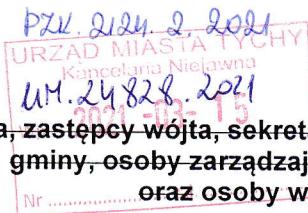 PZK. 2124. 2. 2021
URZĄD MIASTA TYCHY
Kancelaria Niejawna
UM. 24828. 2021
2021 -03- 15
a, zastępcy wójta, sekret
gminy, osoby zarządzaj
Nr
oraz osoby w